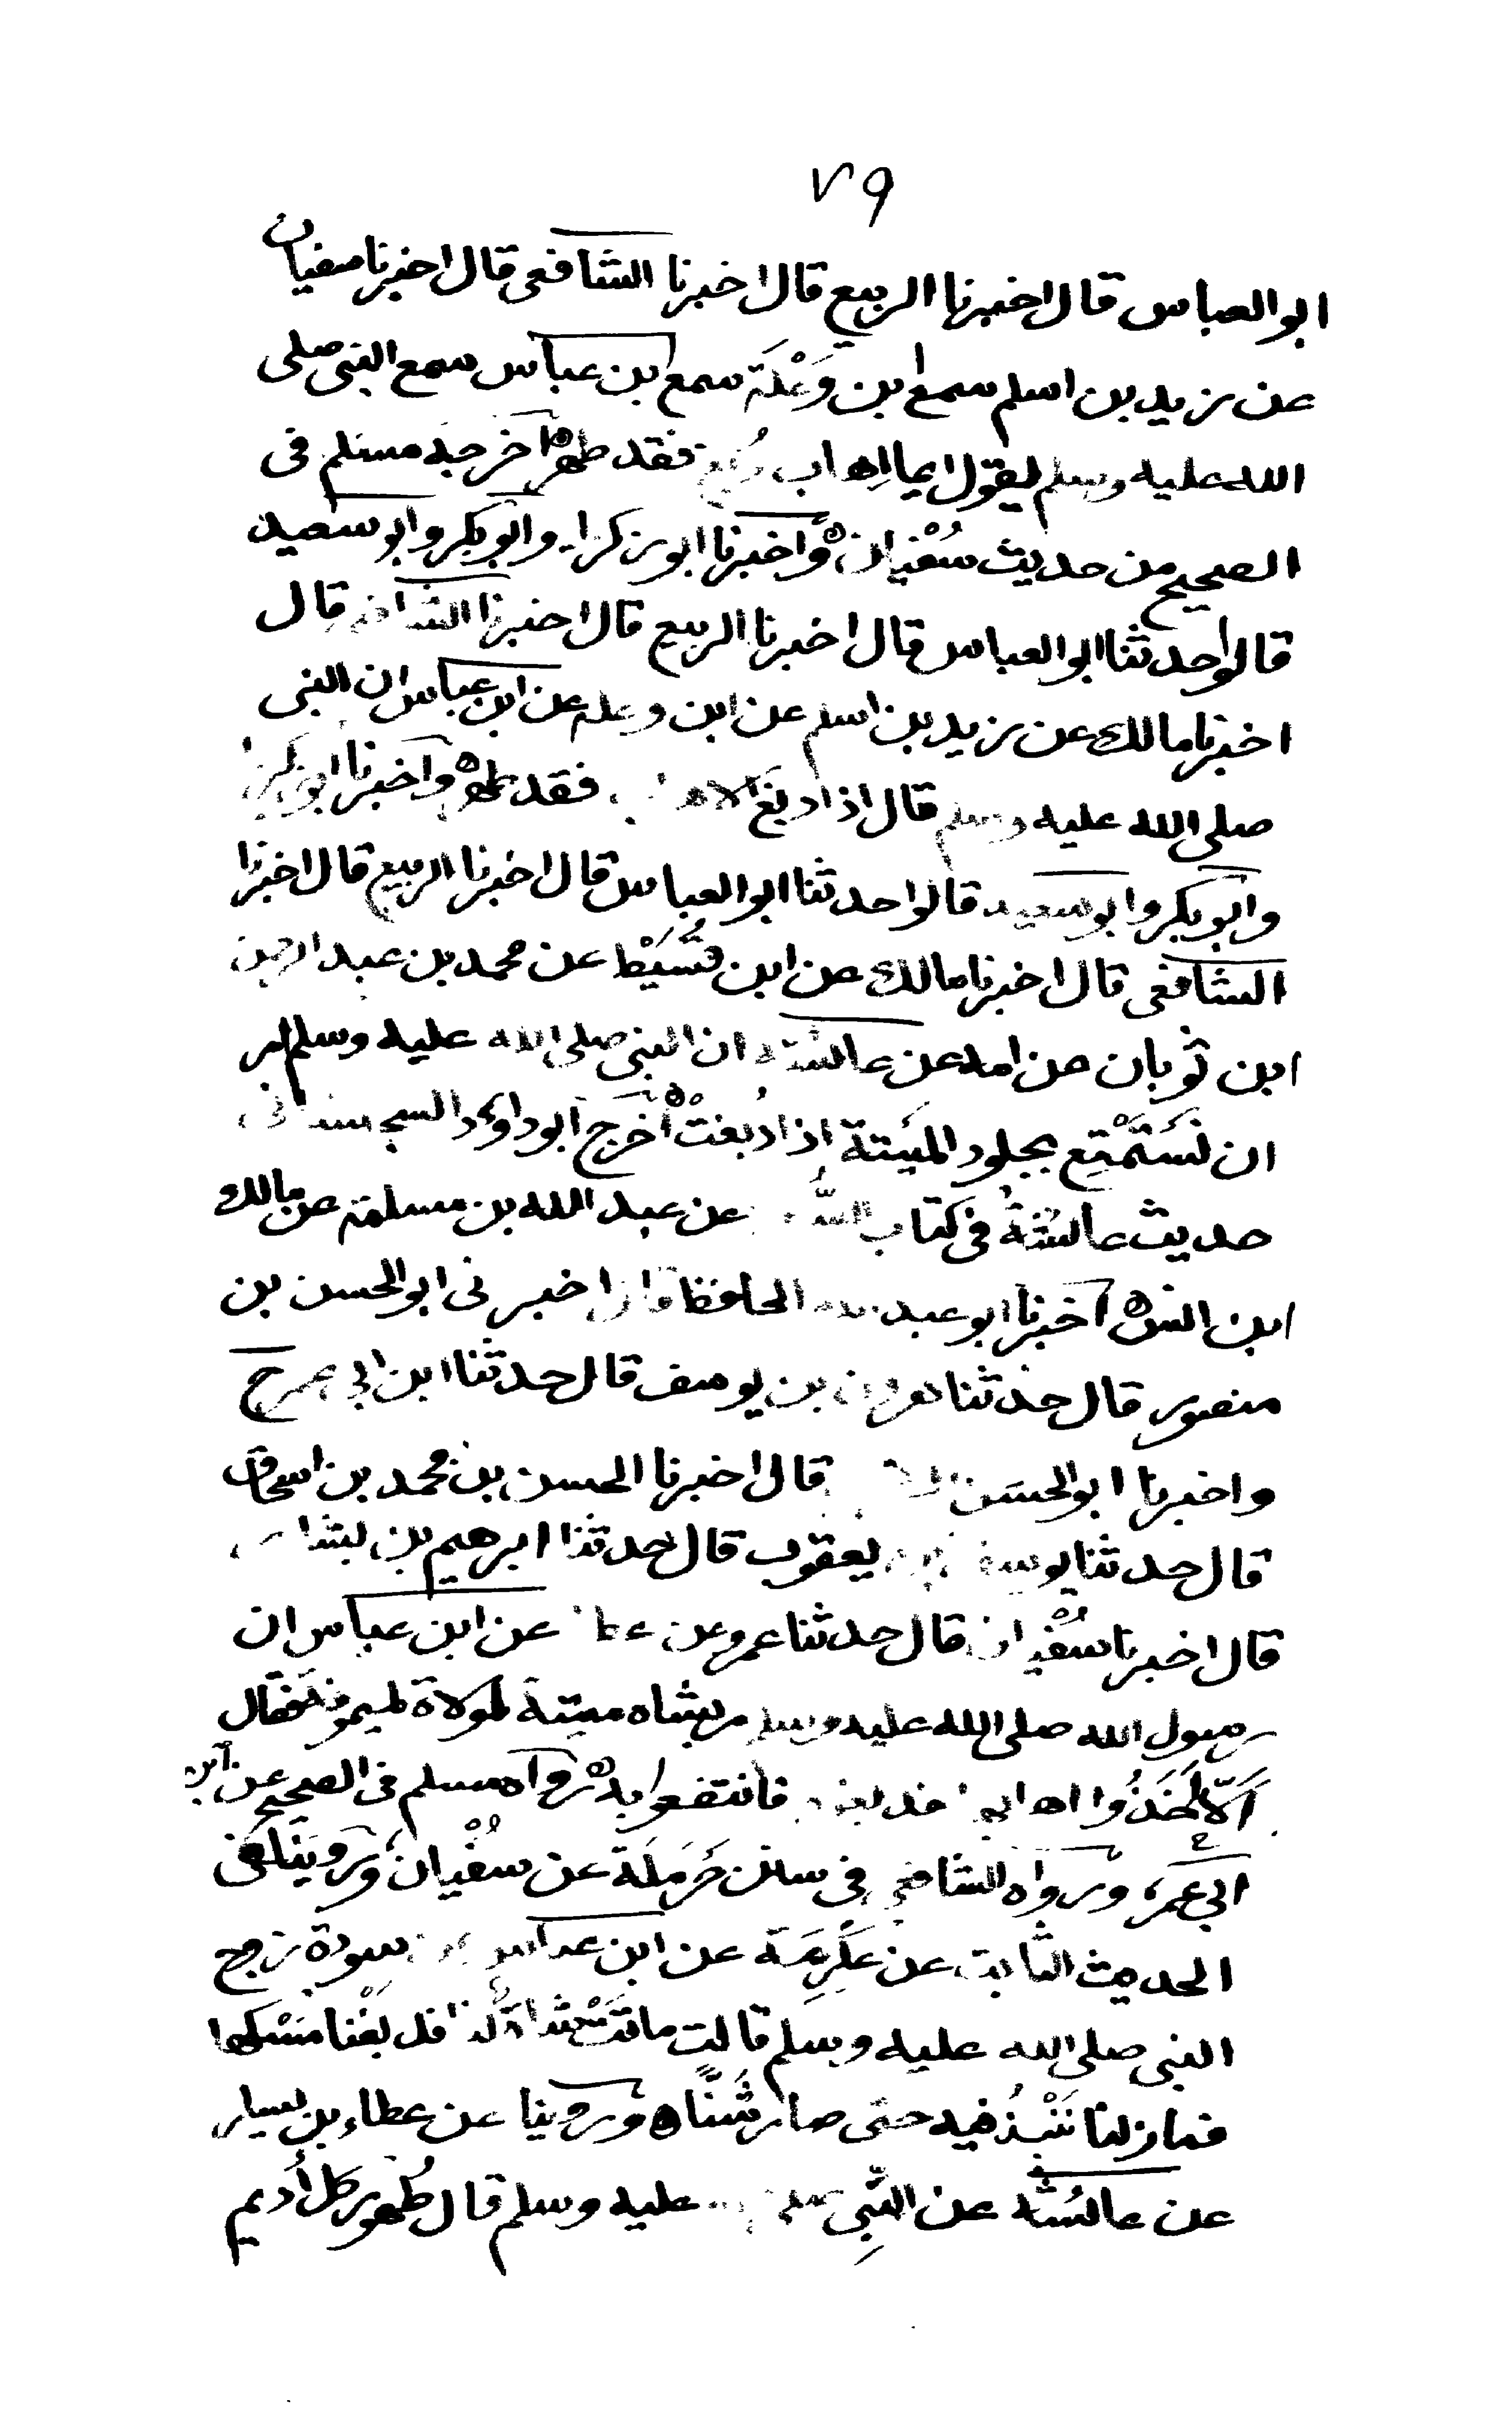 ٧٩
ابو العباس قال اخبرنا الربيع قال اخبرنا الشافعى قال اخبرنا سفيان
عن زيد بن اسلم سمع ابن وَعْلَة سمع ابن عباس سمع النبى صلى
الله عليه وسلم يقول ايما اهاب دُبغ فقد طهر اخرجه مسلم فى
الصحيح من حديث سُفْيان واخبرنا ابو زكريا وابو بكر وابو سعيد
قالوا حدثنا ابو العباس قال اخبرنا الربيع قال اخبرنا الشافعى قال
اخبرنا مالك عن زيد بن اسلم عن ابن وعلة عن ابن عباس ان النبى
صلى الله عليه وسلم قال اذا دبغ الاهاب فقد طهر واخبرنا ابو زكريا
وابو بكر وابو سعيد قالوا حدثنا ابو العباس قال اخبرنا الربيع قال اخبرنا
الشافعى قال اخبرنا مالك عن ابن قُسَيْط عن محمد بن عبد الرحمن
ابن ثوبان عن امه عن عائشة ان النبى صلى الله عليه وسلم امر
ان نَسْتَمْتِع بجلود الميتة اذا دُبغتْ اخرج ابو داود السجستانى
حديث عائشة فى كتاب عن عبد الله بن مسلمة عن مالك
ابن انس اخبرنا ابو عبد الله الحافظ قال اخبرنى ابو الحسن بن
منصور قال حدثنا هرون بن يوسف قال حدثنا ابن ابى عمر ح
واخبرنا ابو الحسن قال اخبرنا الحسن بن محمد بن اسحاق
قال حدثنا يوسف بن يعقوب قال حدثنا ابرهيم بن بشار
قال اخبرنا سُفْيان قال حدثنا عمرو عن عطا عن ابن عباس ان
رسول الله صلى الله عليه وسلم مر بشاه ميتة لمولاة لميمونة فقال
اَلّا اَخَذُوا اهابها فدبغوه فانتفعوا به رواه مسلم فى الصحيح عن ابن
ابى عمر ورواه الشافعى فى سنن حَرْمَلَة عن سُفْيان وروينا فى
الحديث الثابت عن عِكْرِمَة عن ابن عباس عن سودة زوج
النبى صلى الله عليه وسلم قالت ماتَتْ شاة لنا فدبَغْنا مَسْكها
فما زلنا نَنْبُذ فيه حتى صار شَنًّا وروينا عن عطاء بن يسار
عن عائشة عن النَّبِى صلى الله عليه وسلم قال طُهور كل أديم